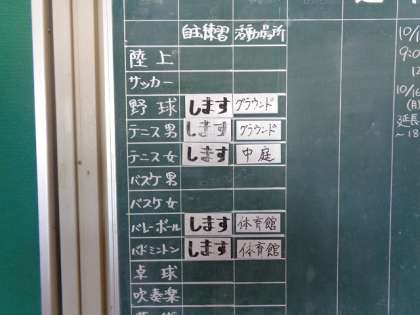 自主練習 活動場所
陸上
サッカー
野球 します グラウンド
テニス男 します グラウンド
テニス女 します 中庭
バスケ男
バスケ女
バレーボール します 体育館
バドミントン します 体育館
卓球
吹奏楽
10/1
9:0
10/16
(月)
延長
~18